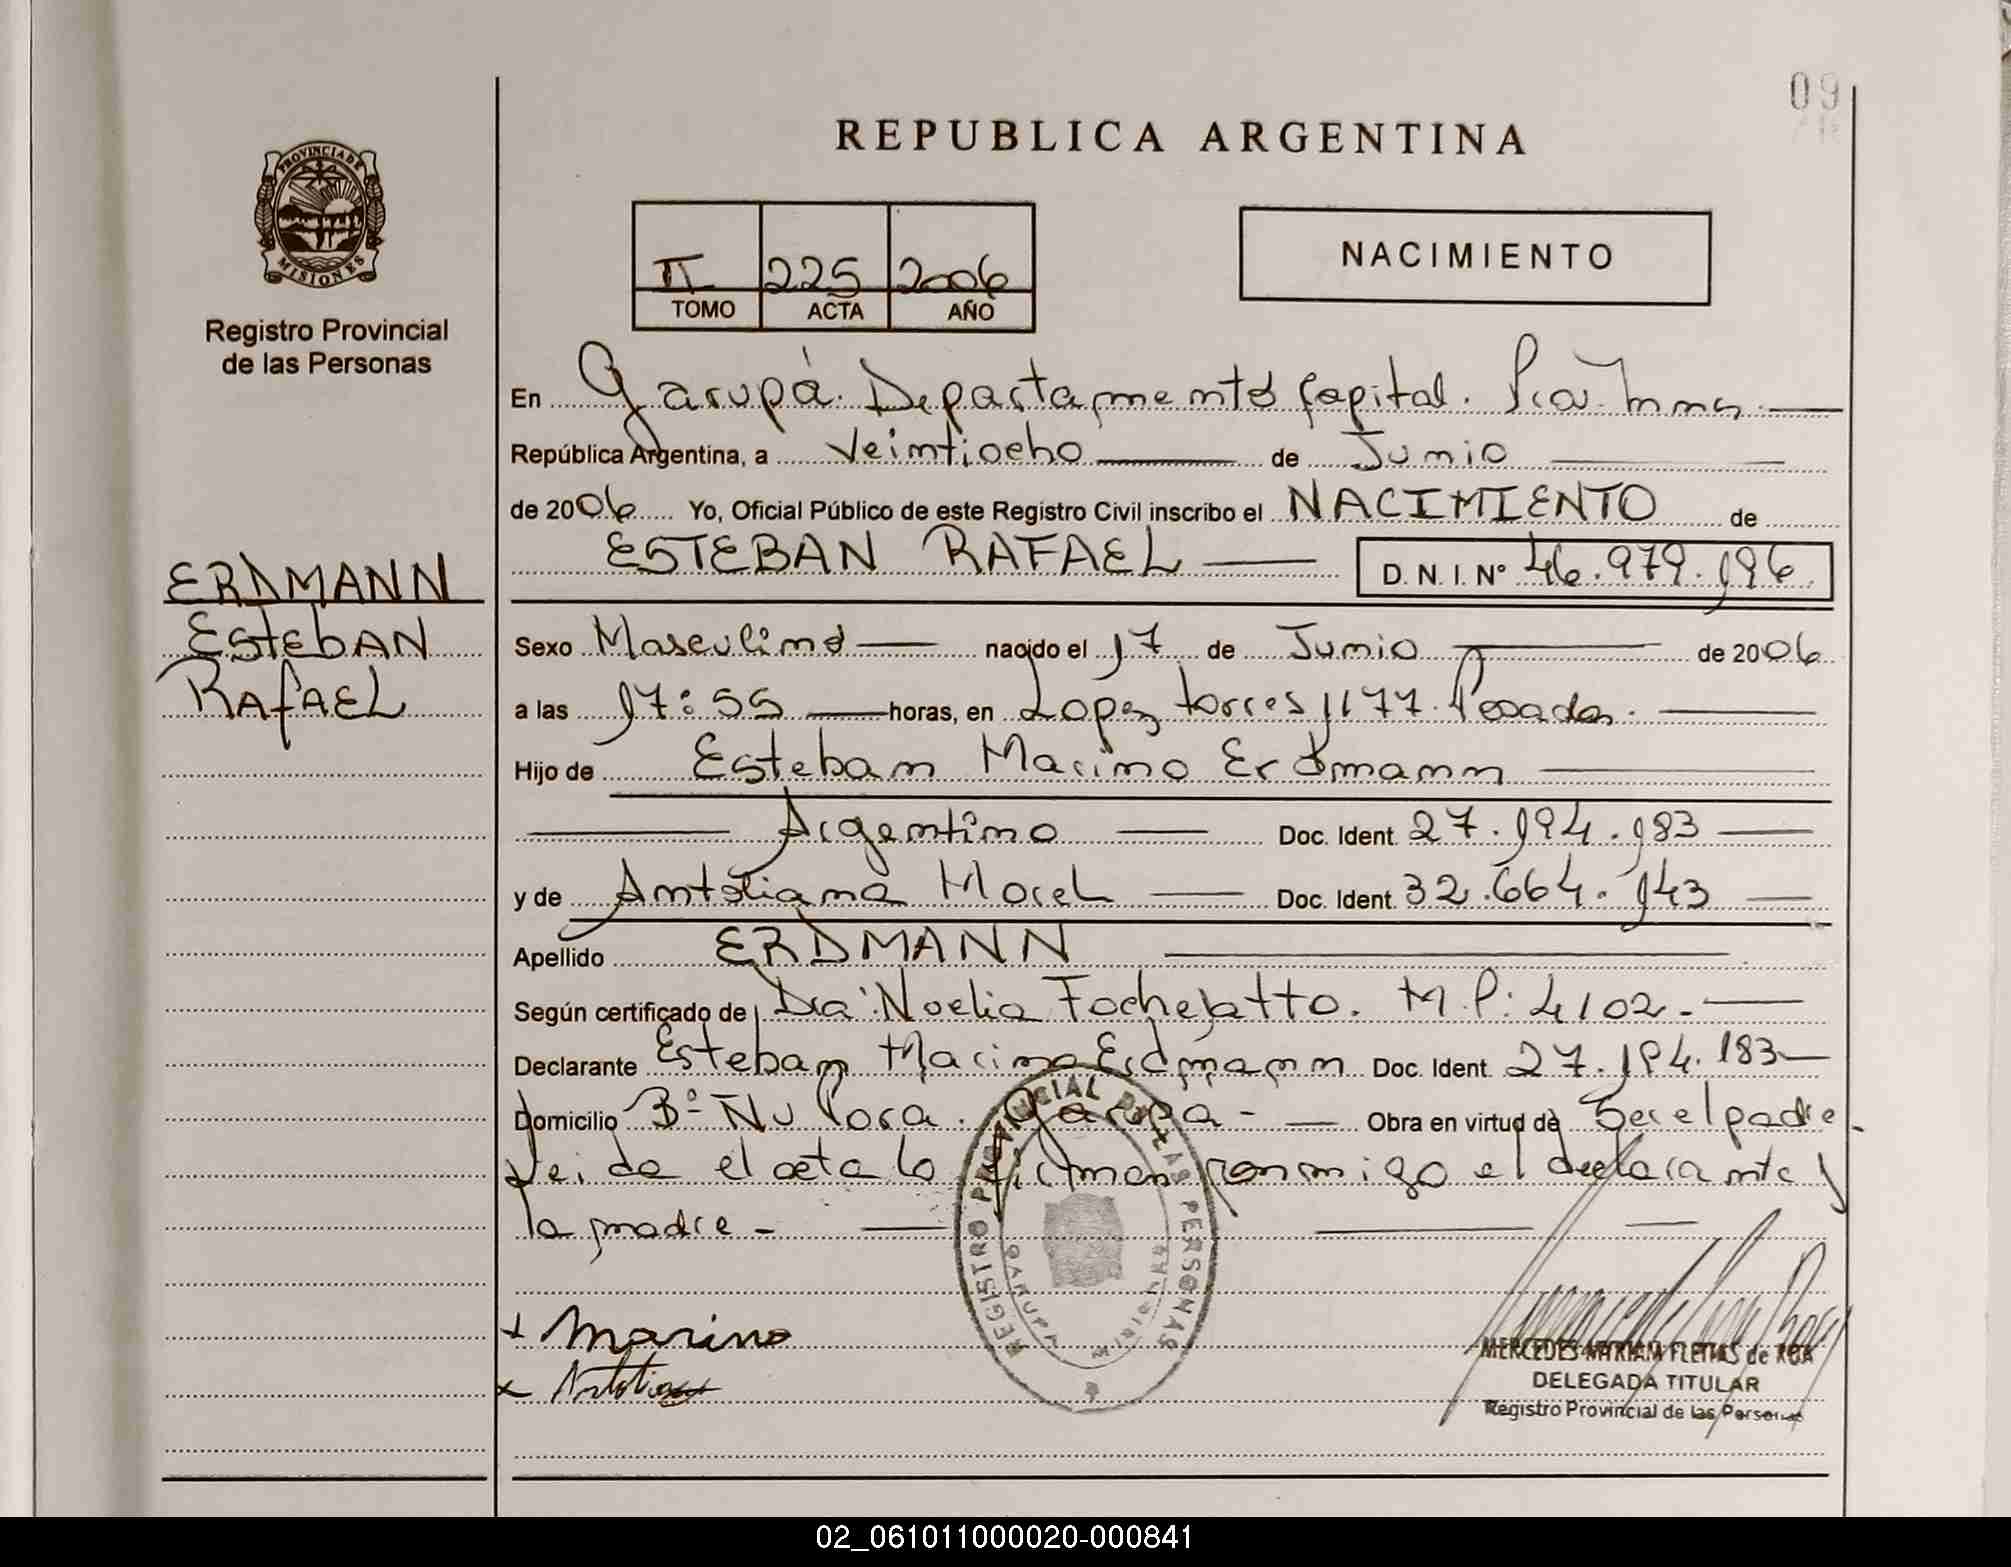 09
REPUBLICA ARGENTINA
PROVINCIA DE MISIONES
Registro Provincial
de las Personas
II 225 2006
TOMO ACTA AÑO
NACIMIENTO
En Garupá. Departamento Capital. Pcia. Mnes.
República Argentina, a Veintiocho de Junio
de 2006 Yo, Oficial Público de este Registro Civil inscribo el NACIMIENTO de
ESTEBAN RAFAEL D. N. I. Nº 46.979.196
ERDMANN
Esteban
Rafael
Sexo Masculino nacido el 17 de Junio de 2006
a las 17:55 horas, en Lopez torres 1177. Posadas.
Hijo de Esteban Marino Erdmann
Argentino Doc. Ident. 27.194.183
y de Antoliana Morel Doc. Ident. 32.664.143
Apellido ERDMANN
Según certificado de Dra. Noelia M.P: 4102.
Declarante Esteban Marino Erdmann Doc. Ident. 27.194.183
Domicilio Bº Ñu Pora. Garupa - Obra en virtud de Ser el padre.
Leida el acta la firman conmigo el declarante y
la madre -
REGISTRO PROVINCIAL DE LAS PERSONAS
GARUPA MISIONES
x Marino
x
MERCEDES MYRIAM FLEITAS de ROA
DELEGADA TITULAR
Registro Provincial de las Personas
02_061011000020-000841